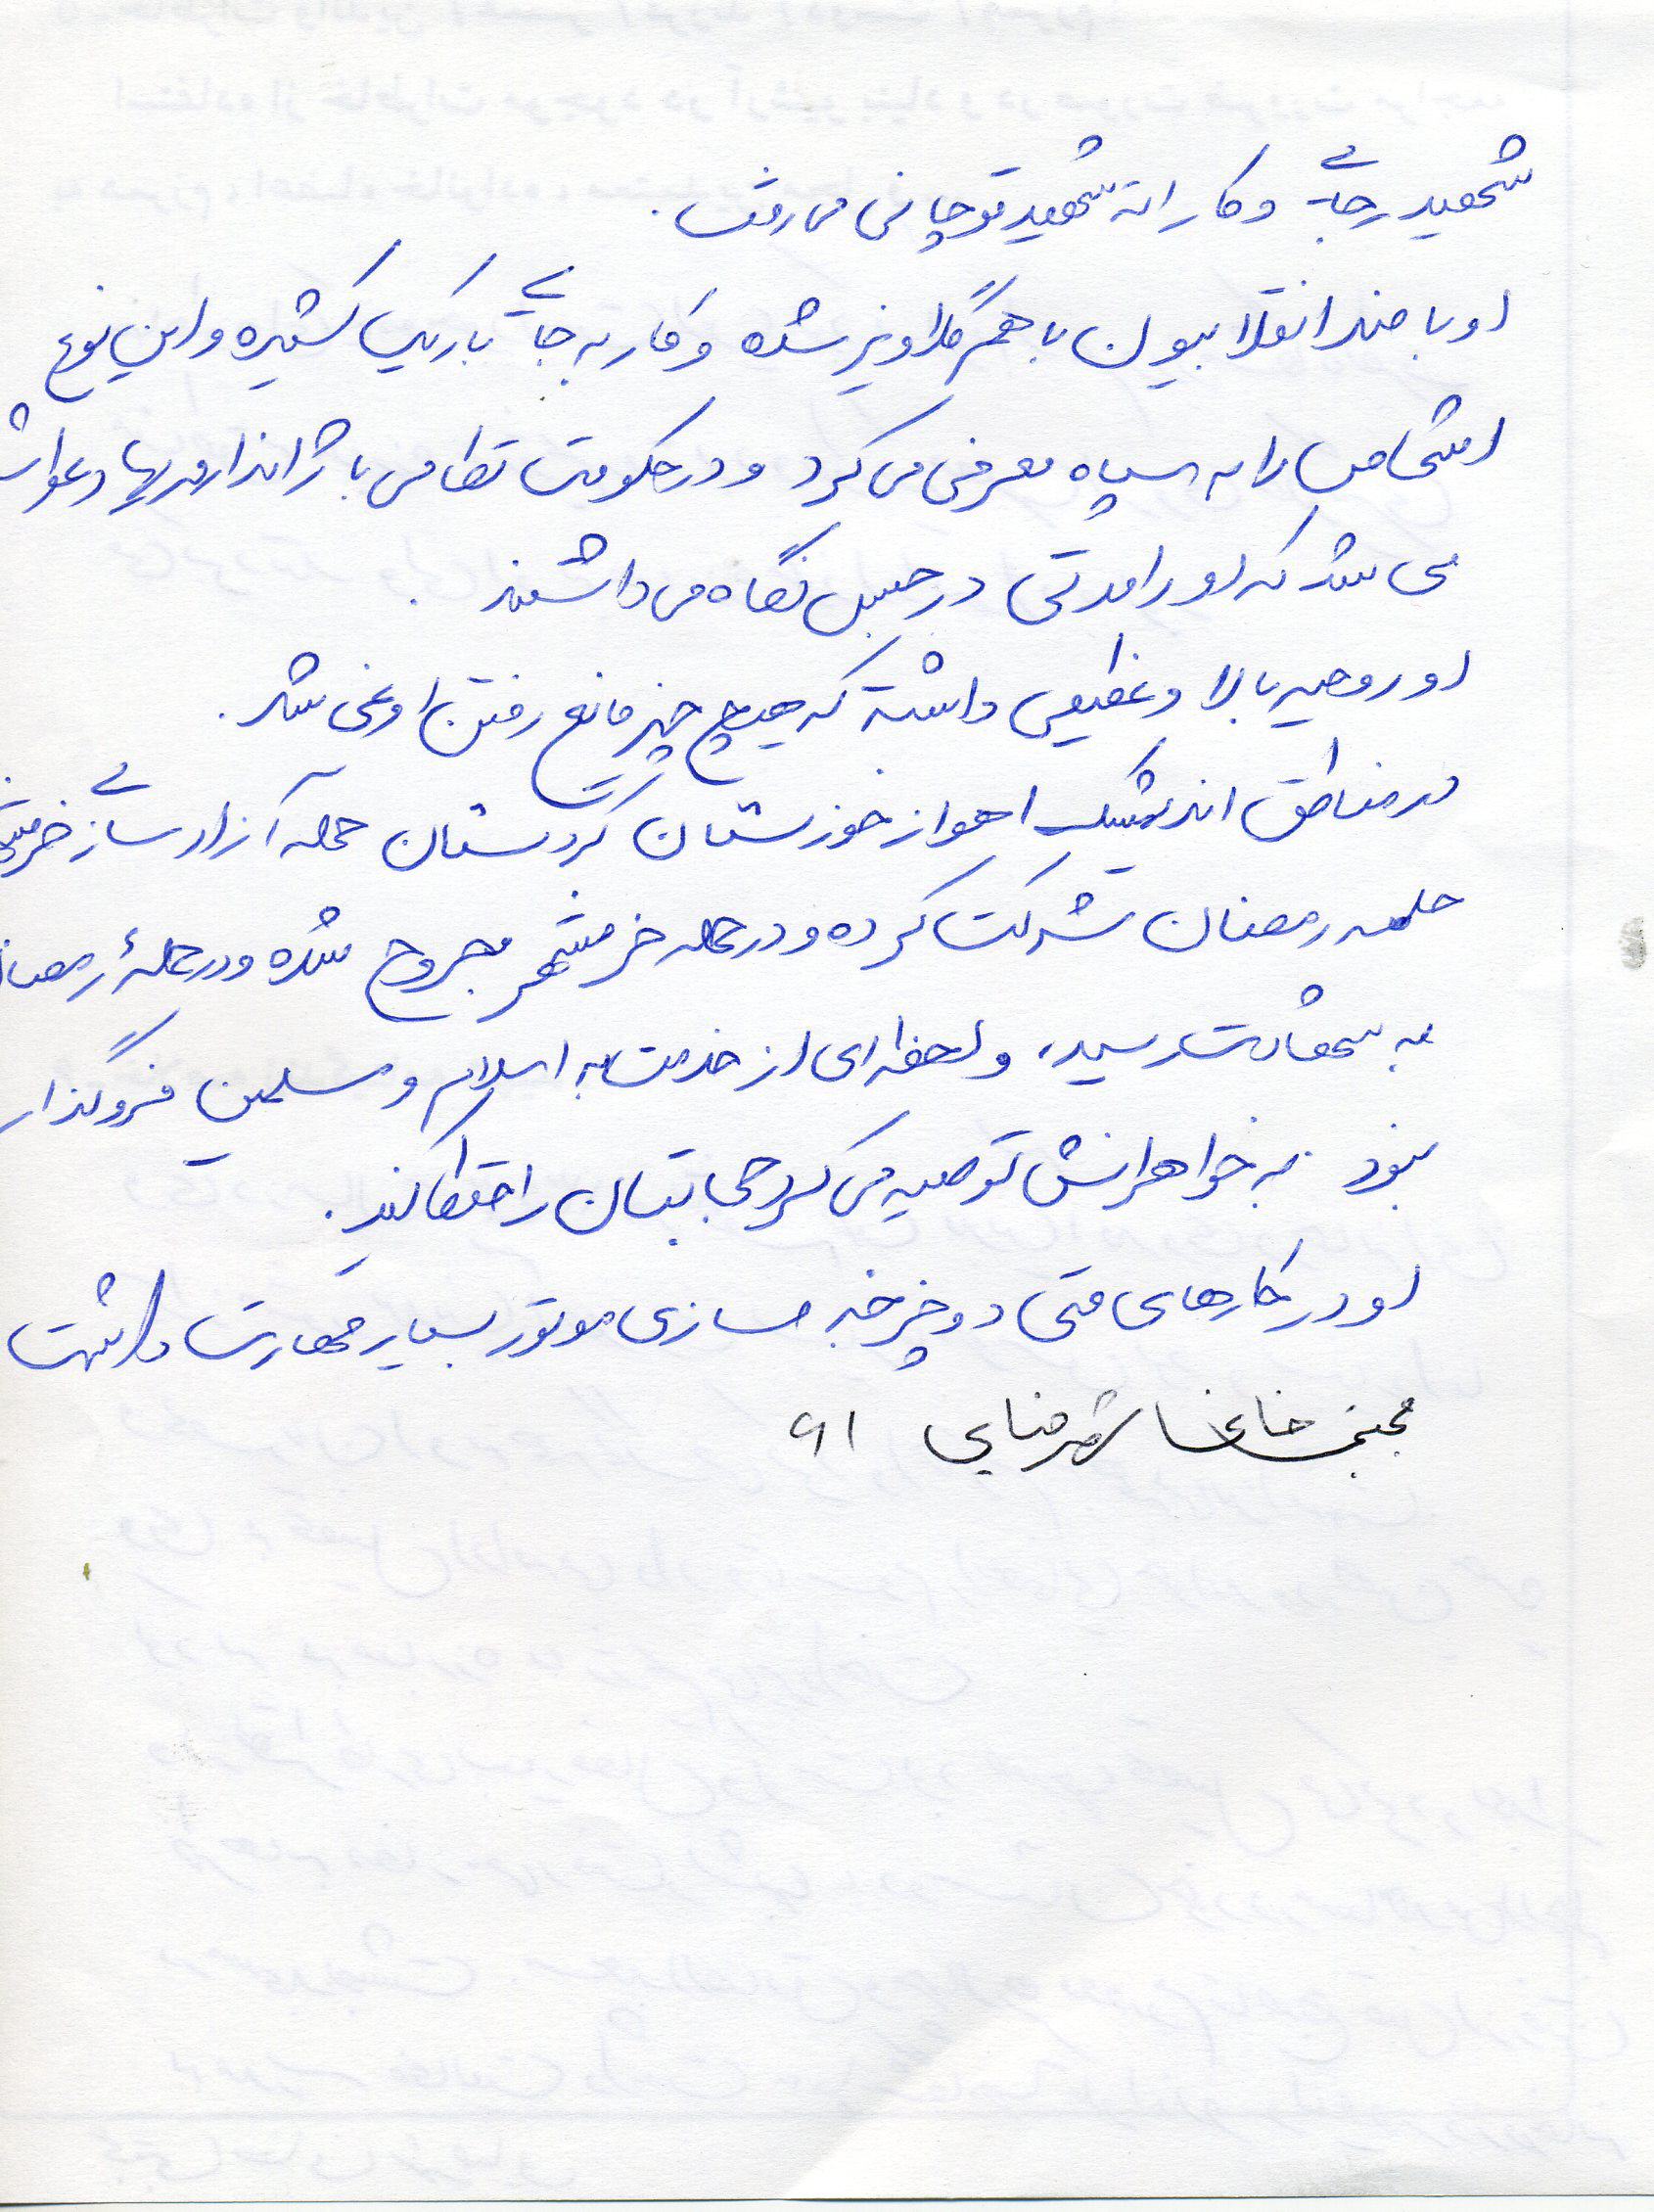 شهید رجایی و کاراته شهید قوچانی می رفت.
او با ضد انقلابیون با هم گلاویز شده و کار به جایی باریک کشیده و این نوع
اشخاص را به سپاه معرفی می کرد و در حکومت نظامی با ژاندارمریها دعوایش
می شد که او را مدتی در حبس نگاه می داشتند.
او روحیه بالا و عظیمی داشته که هیچ چیز مانع رفتن او نمی شد.
در مناطق اندیمشک اهواز خوزستان کردستان حمله آزادسازی خرمشهر
حمله رمضان شرکت کرده و در حمله خرمشهر مجروح شده و در حملهٔ رمضان
به شهادت رسید، و لحظه ای از خدمت به اسلام و مسلمین فروگذار
نبود به خواهرانش توصیه می کرد حجابتان را حفظ کنید.
او در کارهای فنی دوچرخه سازی موتور بسیار مهارت داشت